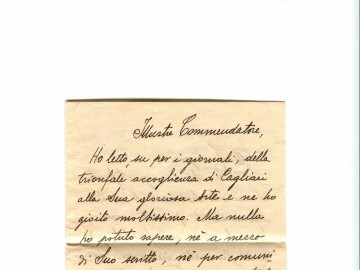 Illustre Commendatore,
Ho letto, su per i giornali, della
trionfale accoglienza di Cagliari
alla Sua gloriosa Arte e ne ho
gioito moltissimo. Ma nulla
ho potuto sapere, nè a mezzo
di Suo scritto, nè per comuni